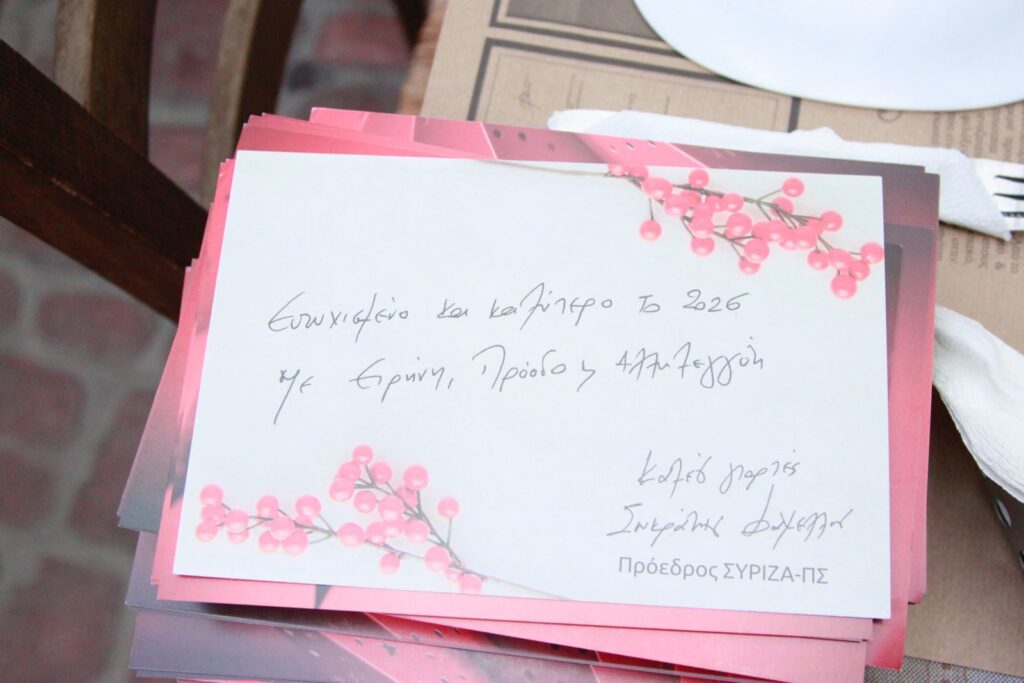 Ευτυχισμένο και καλύτερο το 2026
με Ειρήνη, Πρόοδο, Αλληλεγγύη
Καλές γιορτές
Σωκράτης Φάμελλος
Πρόεδρος ΣΥΡΙΖΑ-ΠΣ